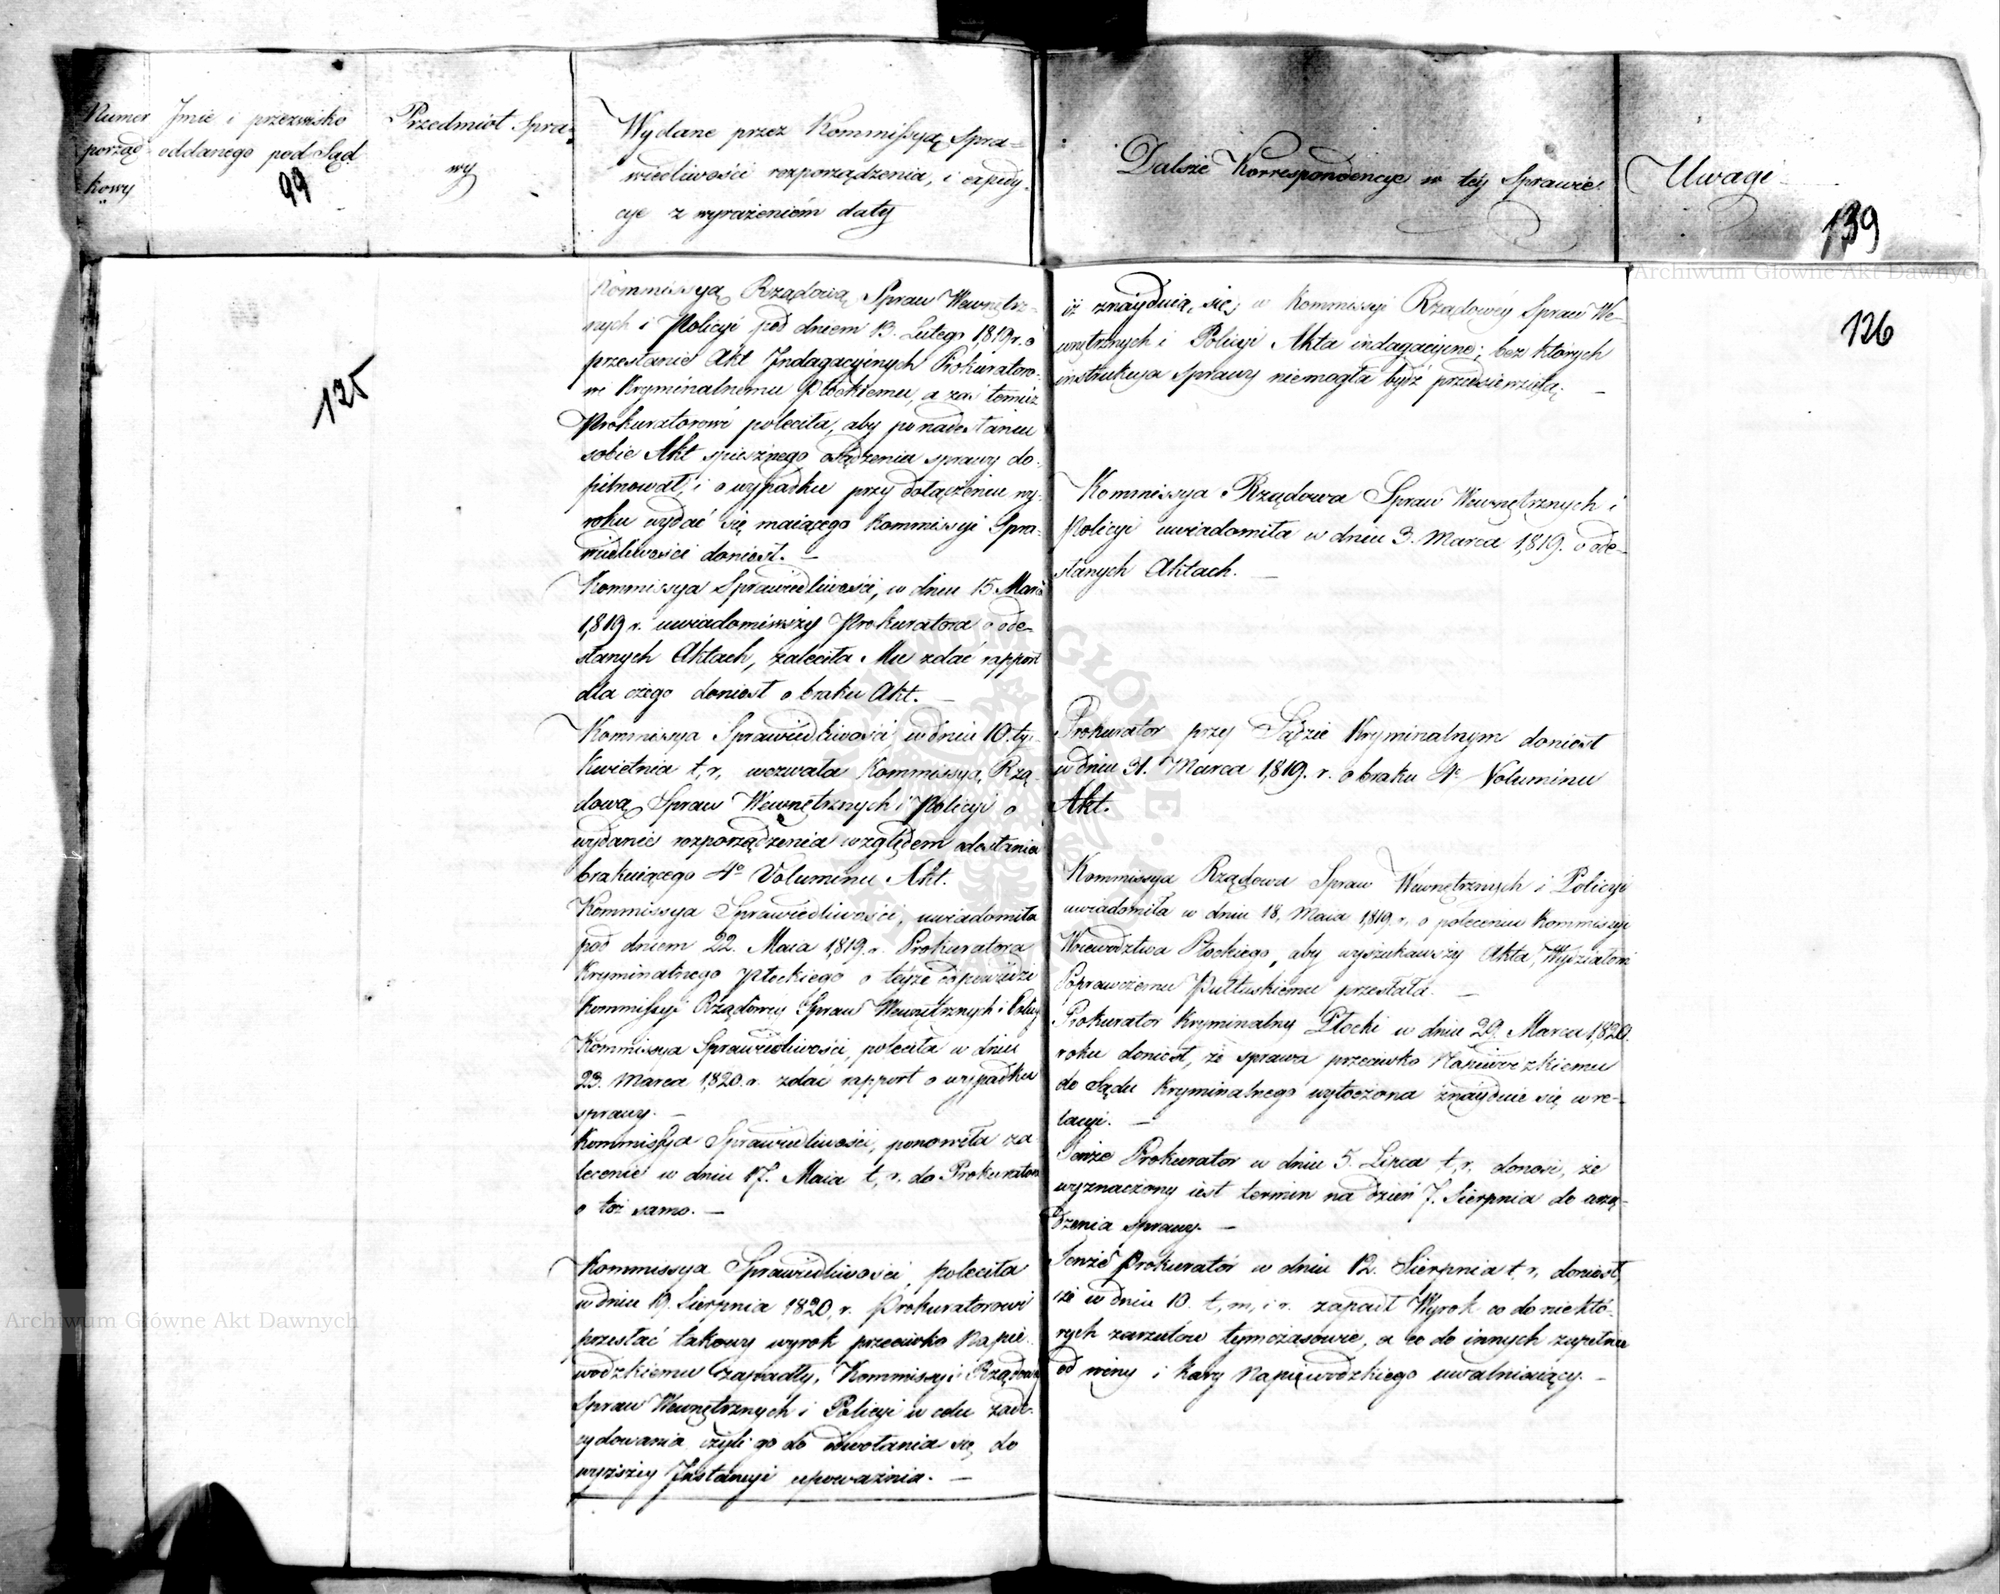 Numer
porząd-
kowy
Jmie i przezwisko
oddanego pod Sąd
99
Przedmiot Spra-
wy
Wydane przez Kommissyą Spra-
wiedliwości rozporządzenia, i expedy-
cye z wyrażeniem daty
Dalsze Korrespondencye w tey Sprawie
Uwagi
139
Archiwum Główne Akt Dawnych
125
Kommissyą Rządową Spraw Wewnętrz-
nych i Policyi pod dniem 13. Lutego 1819 r. o
przesłanie Akt Indagacyinych Prokuratoro-
wi Kryminalnemu Płockiemu, a zaś temuż
Prokuratorowi poleciła, aby po nadesłaniu
sobie Akt spiesznego osądzenia sprawy do-
pilnował, i o wypadku przy dołączeniu wy-
roku wydać się maiącego Kommissyi Spra-
wiedliwości doniosł. —
Kommissya Sprawiedliwości, w dniu 15 Marca
1819 r. uwiadomiwszy Prokuratora o ode-
słanych Aktach, zaleciła Mu zdać rapport
dla czego doniosł o braku Akt. —
Kommissya Sprawiedliwości, w dniu 10. ty
Kwietnia t, r, wezwała Kommissyą Rzą-
dową Spraw Wewnętrznych i Policyi o
wydanie rozporządzenia względem odesłania
brakuiącego 4º Voluminu Akt.
Kommissya Sprawiedliwości, uwiadomiła
pod dniem 22. Maia 1819 r. Prokuratora
Kryminalnego Płockiego o teyże odpowiedzi
Kommissyi Rządowey Spraw Wewnętrznych i Policyi
Kommissya Sprawiedliwości, poleciła w dniu
23. Marca 1820. r. zdać rapport o wypadku
sprawy. —
Kommissya Sprawiedliwości, ponowiła za-
lecenie w dniu 17. Maia t, r, do Prokuratora
o toż samo. —
Kommissya Sprawiedliwości, poleciła
w dniu 19. Sierpnia 1820, r. Prokuratorowi
przesłać takowy wyrok przeciwko Napie-
wodzkiemu zapadły, Kommissyi Rządowey
Spraw Wewnętrznych i Policyi w celu zade-
cydowania czyli go do odwołania się do
wyższey Instancyi upoważnia. —
126
iż znayduią się w Kommissyi Rządowey Spraw We-
wnętrznych i Policyi Akta indagacyine, bez których
instrukcya Sprawy niemogła bydź przedsięwziętą. —
Kommissya Rządowa Spraw Wewnętrznych i
Policyi uwiadomiła w dniu 3. Marca 1819. o ode-
słanych Aktach. —
Prokurator przy Sądzie Kryminalnym doniosł
w dniu 31. Marca 1819. r. o braku 4º Voluminu
Akt.
Kommissya Rządowa Spraw Wewnętrznych i Policyi
uwiadomiła w dniu 18, Maia 1819. r, o poleceniu Kommissyi
Woiewództwa Płockiego, aby wyszukawszy Akta, Wydziałowi
Poprawczemu Pułtuskiemu przesłała. —
Prokurator Kryminalny Płocki w dniu 29. Marca 1820.
roku doniosł, że sprawa przeciwko Napiewodzkiemu
do Sądu Kryminalnego wytoczona znayduie się w re-
lacyi. —
Tenże Prokurator w dniu 5. Lipca t, r. donosi, że
wyznaczony iest termin na dzień 7. Sierpnia do osą-
dzenia sprawy. —
Tenże Prokurator w dniu 12. Sierpnia t, r, doniosł,
że w dniu 10. t, m, i r. zapadł Wyrok co do niektó-
rych zarzutów tymczasowie, a co do innych zupełnie
od winy i kary Napiewodzkiego uwalniaiący. —
Archiwum Główne Akt Dawnych